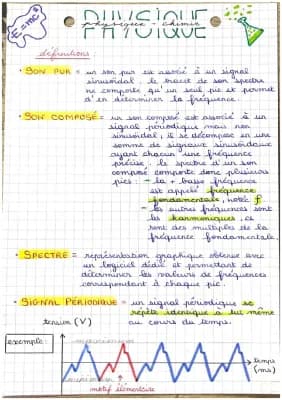 PHYSIQUE
physique - chimie
E=mc²
définitions
• SON PUR = un son pur est associé à un signal
sinusoïdal. le tracé de son spectre
ne comporte qu'un seul pic et permet
d'en déterminer la fréquence.
• SON COMPOSÉ = un son composé est associé à un
signal périodique mais non
sinusoïdal, il se décompose en une
somme de signaux sinusoïdaux
ayant chacun une fréquence
précise. le spectre d'un son
composé comporte donc plusieurs
pics : - la + basse fréquence
est appelé fréquence
fondamentale, notée f
- les autres fréquences sont
les harmoniques, ce
sont des multiples de la
fréquence fondamentale.
• SPECTRE = représentation graphique obtenue avec
un logiciel dédié et permettant de
déterminer les valeurs de fréquences
correspondant à chaque pic.
• SIGNAL PÉRIODIQUE = un signal périodique se
répète identique à lui même
au cours du temps.
tension (V)
exemple :
temps
(ms)
motif élémentaire